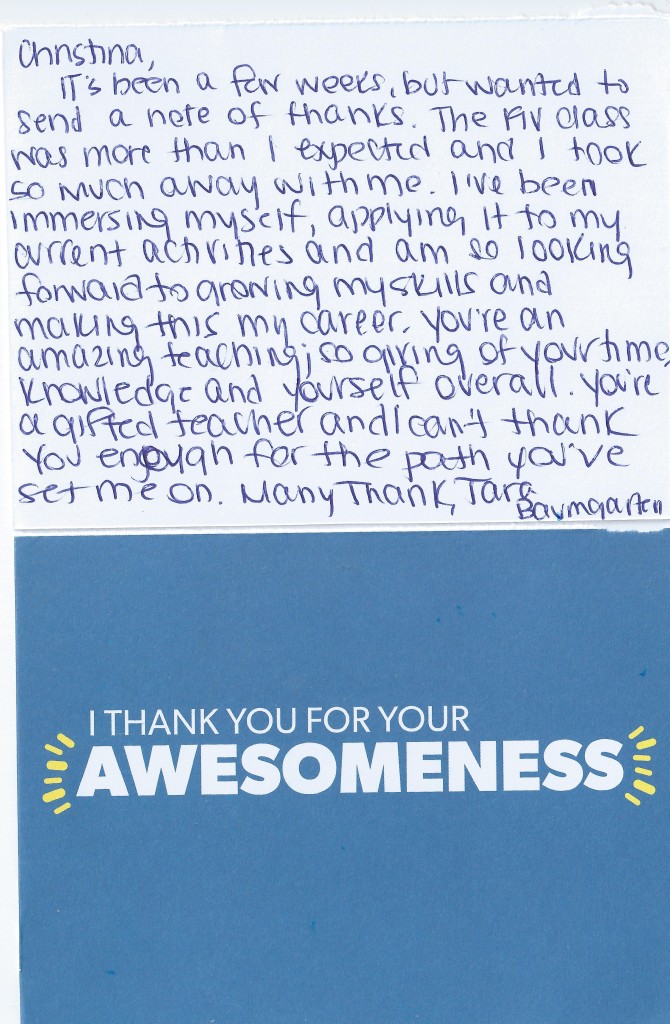 Christina,
IT's been a few weeks, but wanted to
send a note of thanks. The class
was more than I expected and I took
so much away with me. I've been
immersing myself, applying it to my
current activities and am so looking
forward to growing my skills and
making this my career. You're an
amazing teaching; so giving of your time,
knowledge and yourself overall. You're
a gifted teacher and I can't thank
you enough for the path you've
set me on. Many Thank, Tara
Baumgarten
I THANK YOU FOR YOUR
AWESOMENESS